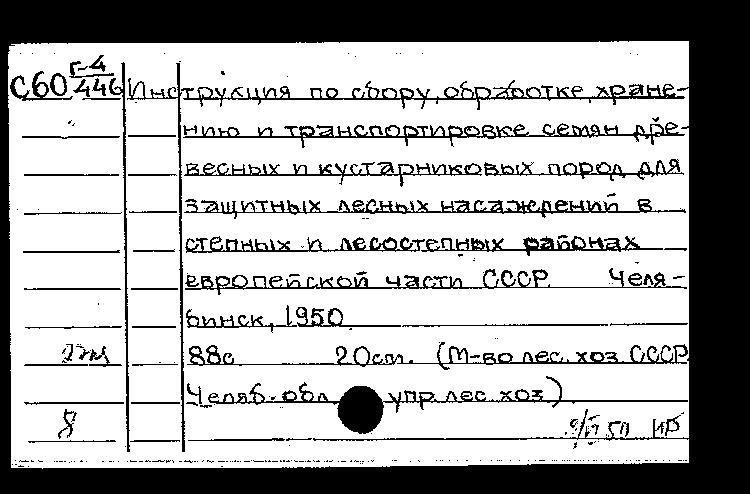 Г-4
С60 446 Инструкция по сбору, обработке, хране-
нию и транспортировке семян дре-
весных и кустарниковых пород для
защитных лесных насаждений в
степных и лесостепных районах
европейской части СССР. Челя-
бинск, 1950.
88с. 20см. (М-во лес. хоз. СССР.
Челяб. обл. упр. лес. хоз.)
8
50